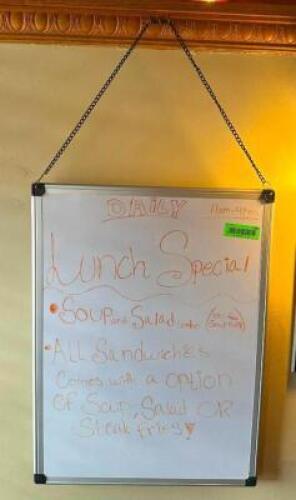 DAILY 11am-4pm
Lunch Special
• Soup and Salad
• ALL Sandwiches
Comes with a option
OF Soup, Salad OR
Steak fries